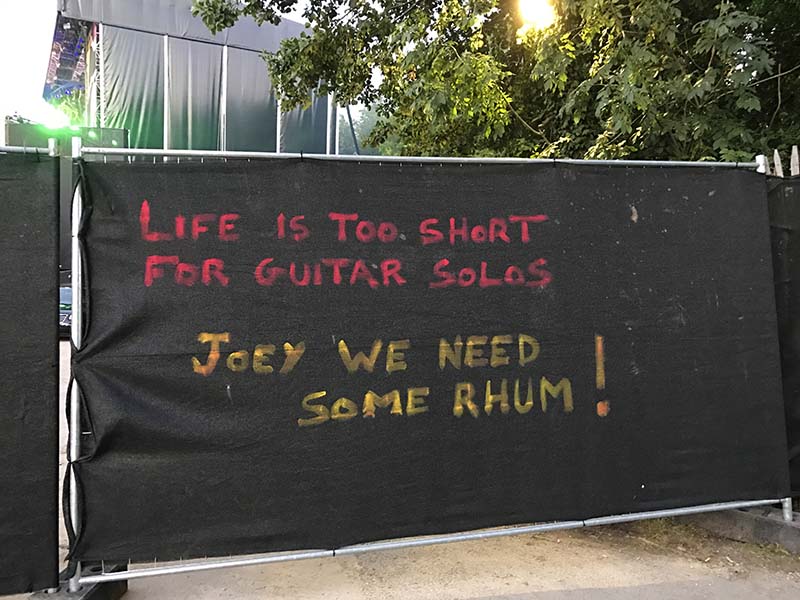 LIFE IS TOO SHORT
FOR GUITAR SOLOS
JOEY WE NEED
SOME RHUM !